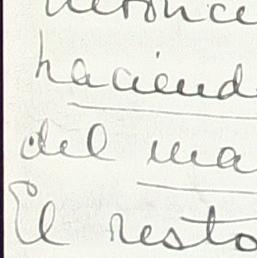 haciend
del ma
El resto